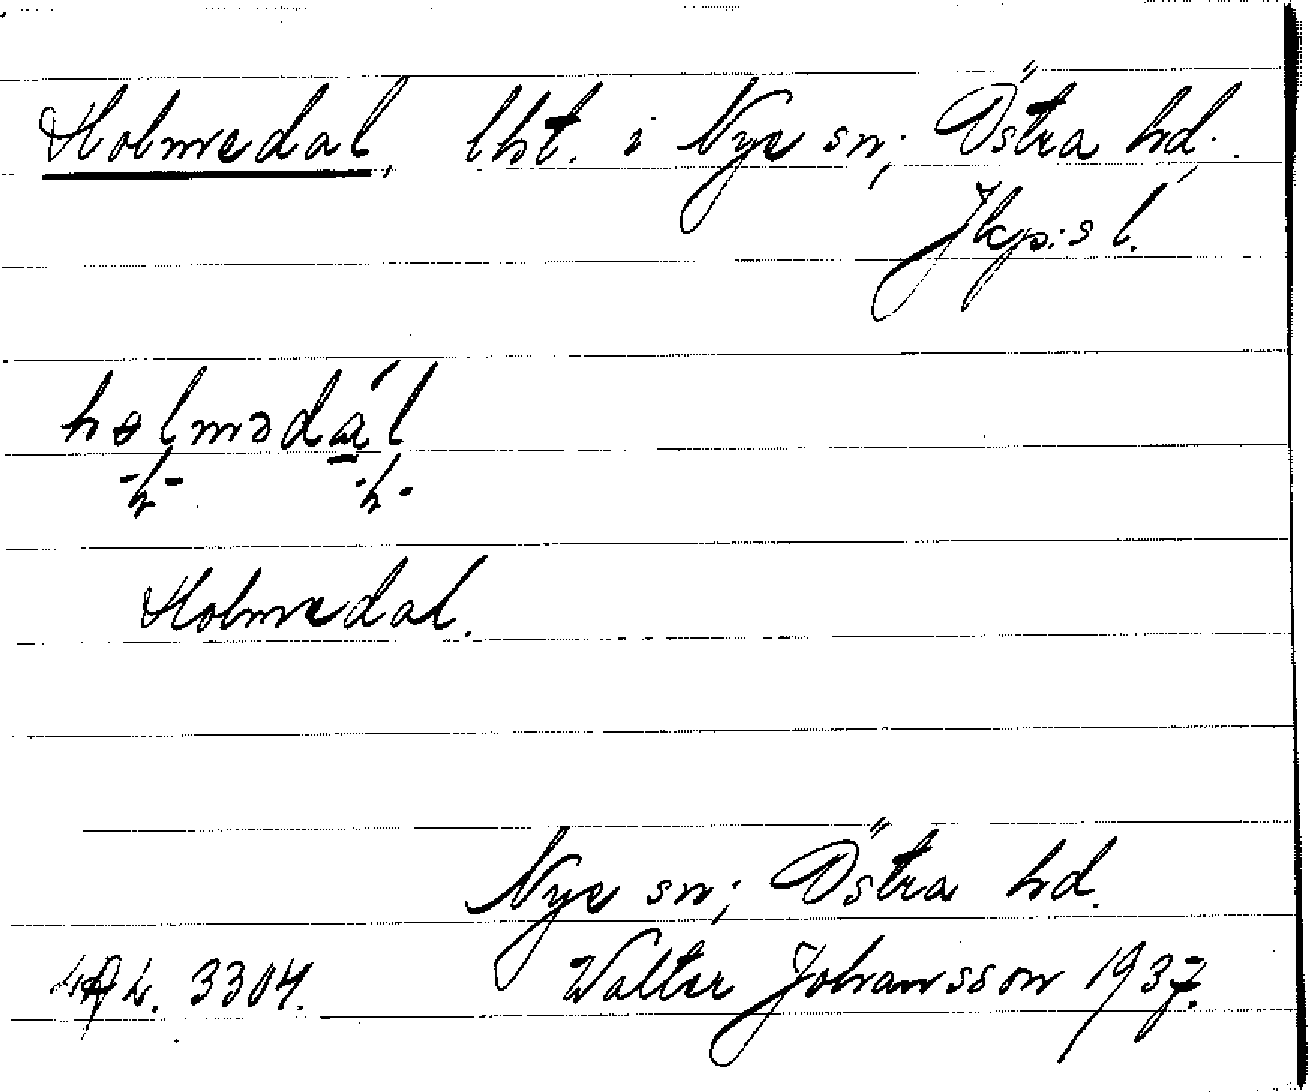 Holmedal, lht. i Nye sn; Östra hd.
Jkp:s l.
hɵlmədál
-h- -h-
Holmedal.
Nye sn; Östra hd.
3304. Walter Johansson 1937.